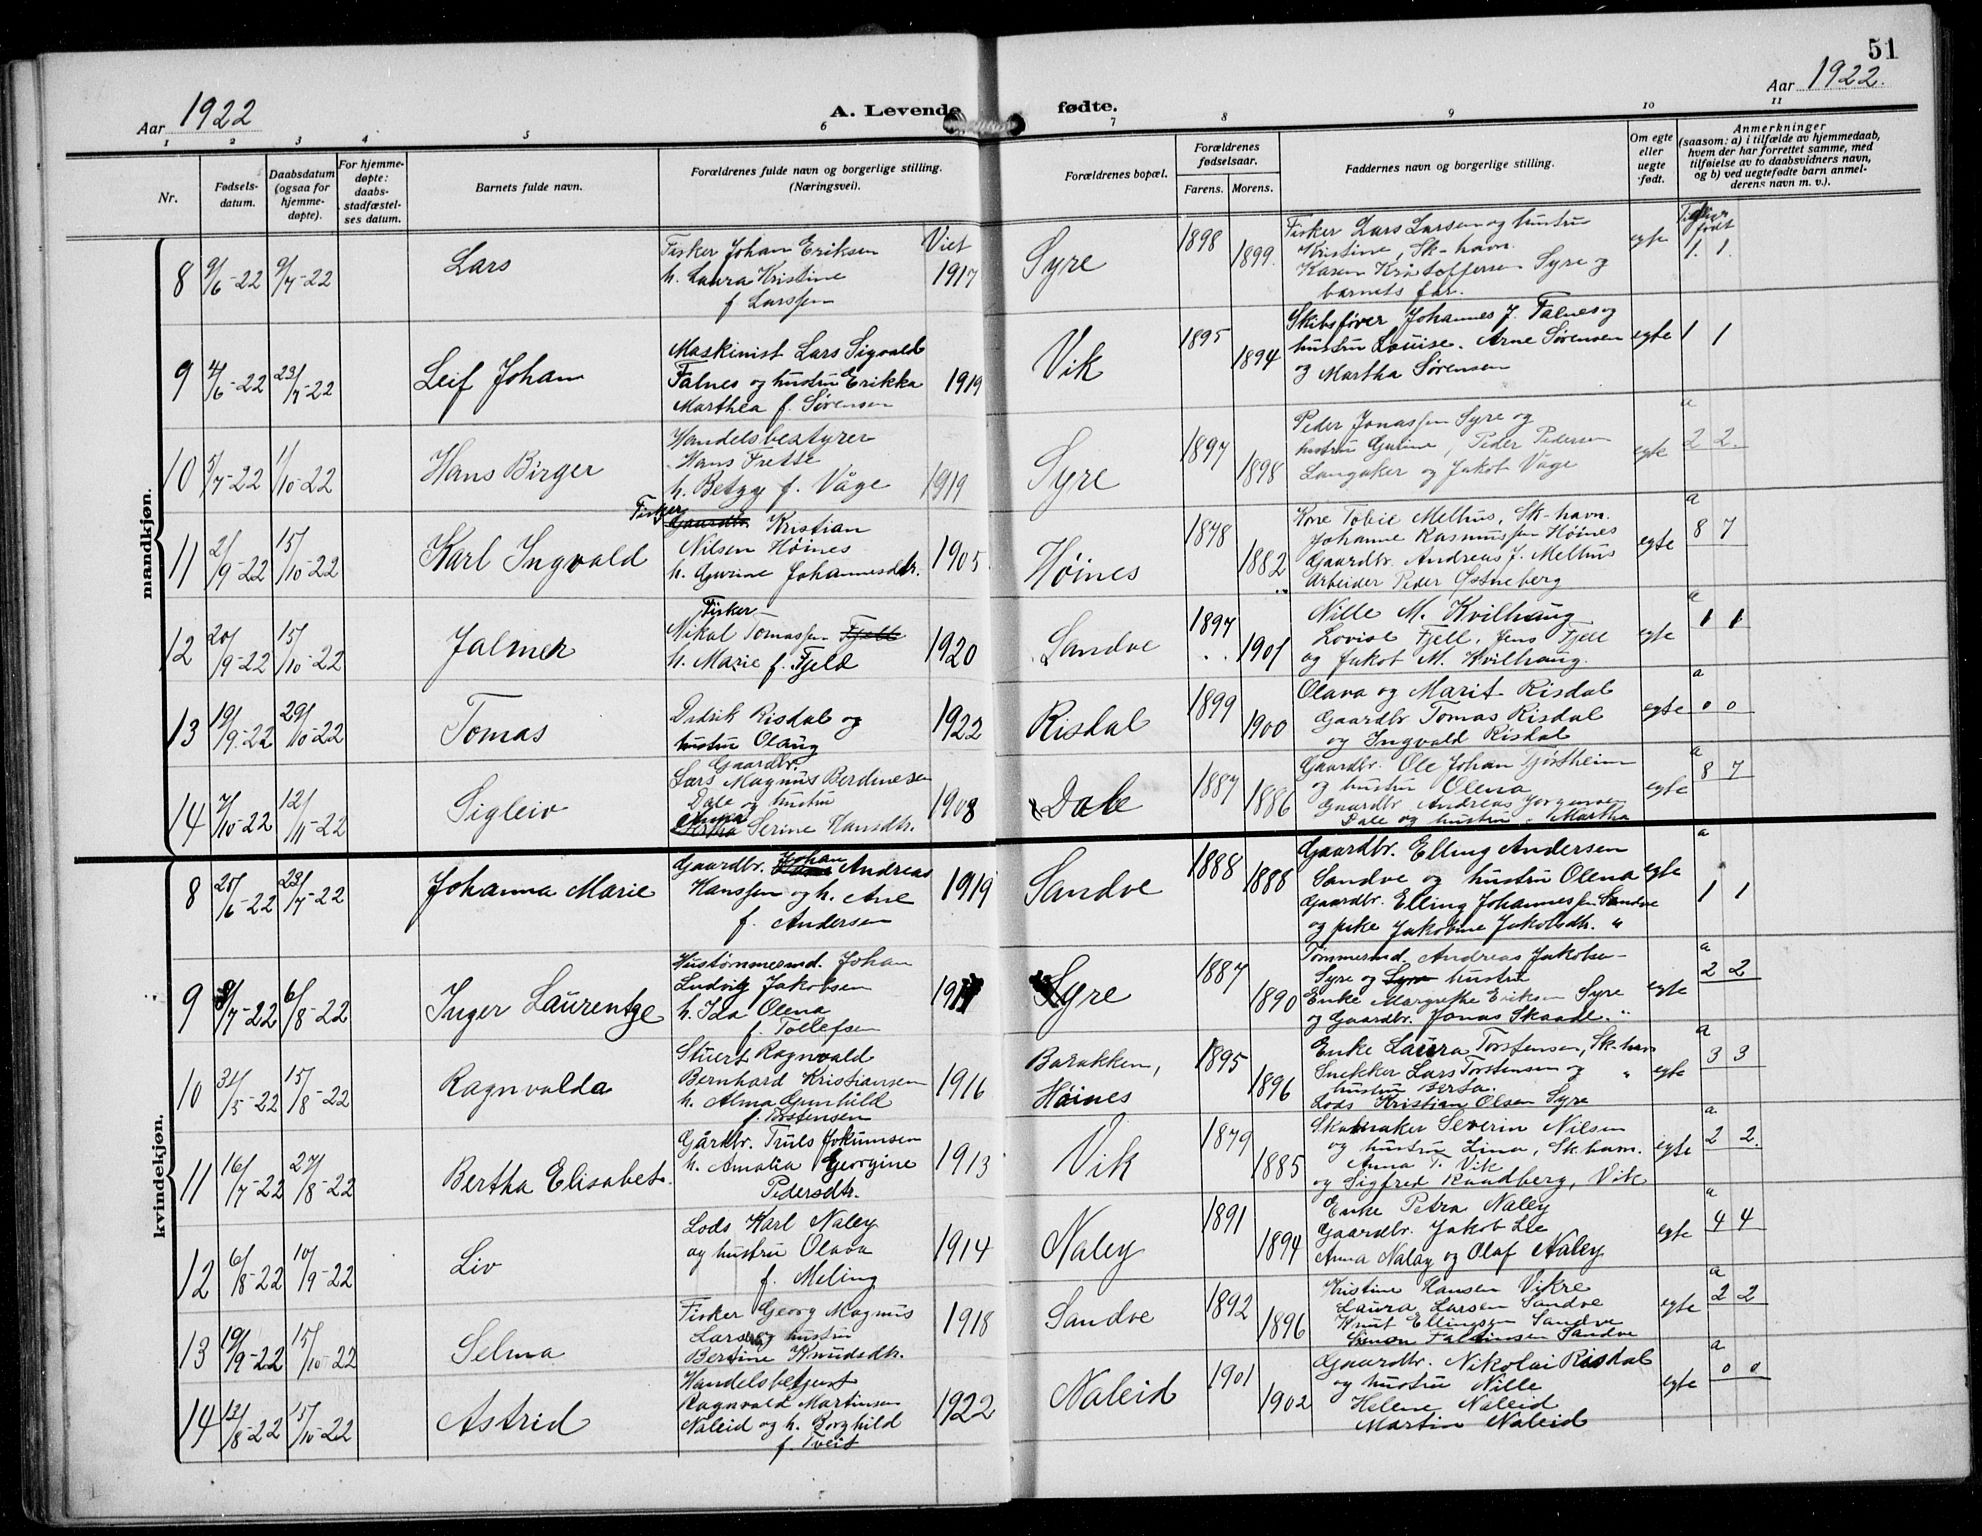 51
Aar 1922
A. Levende fødte.
Aar 1922.
1 2 3 4 5 6 7 8 9 10 11
Nr.
Fødsels-
datum.
Daabsdatum
(ogsaa for
hjemme-
døpte).
For hjemme-
døpte:
daabs-
stadfæstel-
ses datum.
Barnets fulde navn.
Forældrenes fulde navn og borgerlige stilling.
(Næringsvei).
Forældrenes bopæl.
Forældrenes
fødselsaar.
Farens. Morens.
Faddernes navn og borgerlige stilling.
Om egte
eller
uegte
født.
Anmerkninger
(saasom: a) i tilfælde av hjemmedaab,
hvem der har forrettet samme, med
tilføielse av to daabsvidners navn,
og b) ved uegtefødte barn anmel-
derens navn m. v.).
mandkjøn.
8 9/6-22 9/7-22 Lars
Fisker Johan Eriksen
h. Laura Kristine
f Larssen
Viet
1917
Syre
1898 1899.
Fisker Lars Larsen og hustru
Kristine, Sk-havn.
Karen Kristoffersen Syre og
barnets far.
egte
født
1. 1.
9 4/6-22 23/7-22 Leif Johan
Maskinist Lars Sigvald
Falnes og hustru Erikka
Marthea f. Sørensen
1919
Vik
1895 1894
Skibsfører Johannes J. Falnes og
hustru Louise. Arne Sørensen
og Martha Sørensen
egte 1 1
10 5/7-22 1/10-22 Hans Birger
Handelsbestyrer
Hans Frette
h. Betzy f. Våge
1919
Syre
1897 1898
Peder Jonassen Syre og
hustru Guline, Peder Pedersen
Langaker og Jakob Våge
egte
a
2 2.
11 2/9-22 15/10-22 Karl Ingvald
Fisker
Gaardbr. Kristian
Nilsen Høines
h. Gurine Johannesdtr.
1905.
Høines
1878 1882
Kone Tobie Melhus, Sk-havn.
Johanne Rasmussen Høines
Gaardbr. Andreas J. Melhus
Arbeider Peder Østneberg
egte
a
8 7
12 20/9-22 15/10-22 Jalmer
Fisker
Nikal Tomassen Fjell
h. Marie f. Fjeld
1920
Sandve
1897 1901
Nille M. Kvilhaug
Lovise Fjell, Jens Fjell
og Jakob M. Kvilhaug.
egte
a
1 1
13 19/9-22 29/10-22 Tomas
Didrik Risdal og
hustru Olaug
1922
Risdal
1899 1900
Olava og Marit Risdal
Gaardbr Tomas Risdal
og Ingvald Risdal
egte
a
0 0
14 7/10-22 12/11-22 Sigleiv
Gaardbr.
Lars Magnus Berdinesen
Dale og hustru
Anna
Serine Hansdtr.
1908
Dale
1887 1886
Gaardbr. Ole Johan Tjøstheim
og hustru Olena
Gaardbr. Andreas Jørgensen
Dale og hustru Martha
egte
a
8 7
kvindekjøn.
8 20/6-22 23/7-22 Johanna Marie
Gaardbr. Johan Andreas
Hanssen og h. Ane
f. Andersen
1919
Sandve
1888 1888
Gaardbr. Elling Andersen
Sandve og hustru Olena
Gaardbr. Elling Johannessen Sandve
og pike Jakobine Jakobsdtr. "
egte
a
1 1
9 8/7-22 6/8-22 Inger Laurentze
Hustømmermd. Johan
Ludvig Jakobsen
h. Ida Olena
f. Tollefsen
Syre
1887 1890
Tømmermd. Andreas Jakobsen
Syre og Syre hustru
Enke Margrethe Eriksen Syre
og Gaardbr. Jonas Skaade. "
egte
a
2 2
10 31/5-22 15/8-22 Ragnvalda
Stuert Ragnvald
Bernhard Kristiansen
h. Alma Gunhild
f. Torstensen
1916
Barakken,
Høines
1895 1896
Enke Laura Torstensen, Sk-havn
Snekker Lars Torstensen og "
hustru Berta.
Lods Kristian Olsen Syre
egte
a
3 3
11 16/7-22 27/8-22 Bertha Elisabet.
Gårdbr. Truls Jokumsen
h. Amalia Georgine
Pedersdtr.
1913
Vik
1879 1885
Skomaker Severin Nilsen
og hustru Lina, Sk.havn.
Anna T. Vik
og Sigfred Rundberg, Vik
egte
a
2 2.
12 6/8-22 10/9-22 Liv
Lods Karl Naley
og hustru Olava
f. Meling
1914
Naley
1891 1894
Enke Petra Naley
Gaardbr. Jakob Lie
Anna Naley og Olaf Naley
egte
a
4 4
13 19/9-22 15/10-22 Selma
Fisker Georg Magnus
Larsen og hustru
Bertine Knudsdtr.
1918
Sandve
1892 1896
Kristine Hansen Vikre
Laura Larsen Sandve
Knut Ellingsen Sandve
Simon Faltinsen Sandve
egte
a
2 2
14 13/8-22 15/10-22 Astrid
Handelsbetjent
Ragnvald Martinsen
Naleid og h. Borghild
f. Tveit
1922
Naleid
1901 1902
Gaardbr. Nikolai Risdal
og hustru Nille
Helene Naleid
Martin Naleid
egte
a
0 0